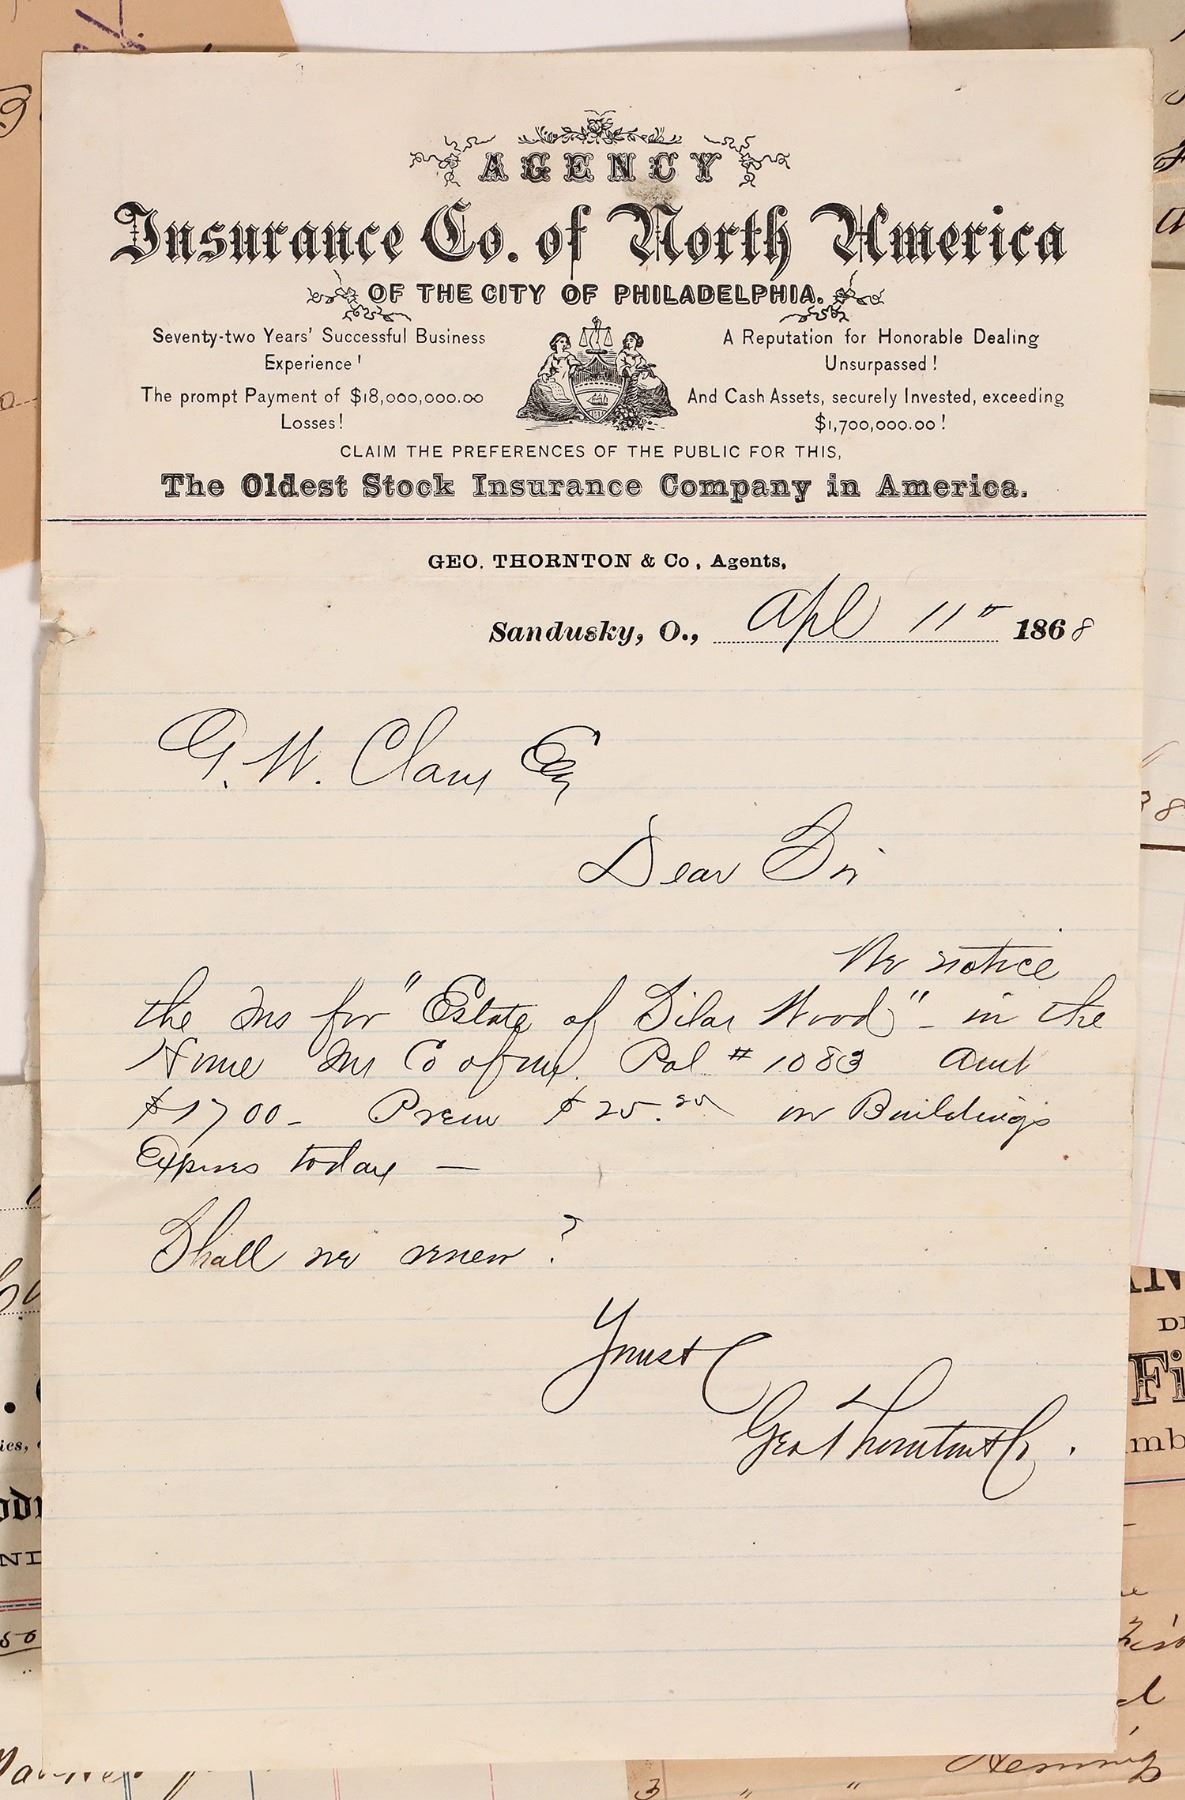 AGENCY
Insurance Co. of North America
OF THE CITY OF PHILADELPHIA.
Seventy-two Years' Successful Business
Experience!
The prompt Payment of $18,000,000.00
Losses!
A Reputation for Honorable Dealing
Unsurpassed!
And Cash Assets, securely Invested, exceeding
$1,700,000.00!
CLAIM THE PREFERENCES OF THE PUBLIC FOR THIS,
The Oldest Stock Insurance Company in America.
GEO. THORNTON & Co, Agents,
Sandusky, O., Apl 11th 1868
G. W. Esq
Dear Sir
We notice
the Ins for "Estate of Silas Wood" - in the
Home Ins Co of Pol # 1083 Amt
$1700 - Prem $25. on Buildings
Expires today —
Shall we renew?
Geo Thornton & Co.
Fi
38
50
3 " "